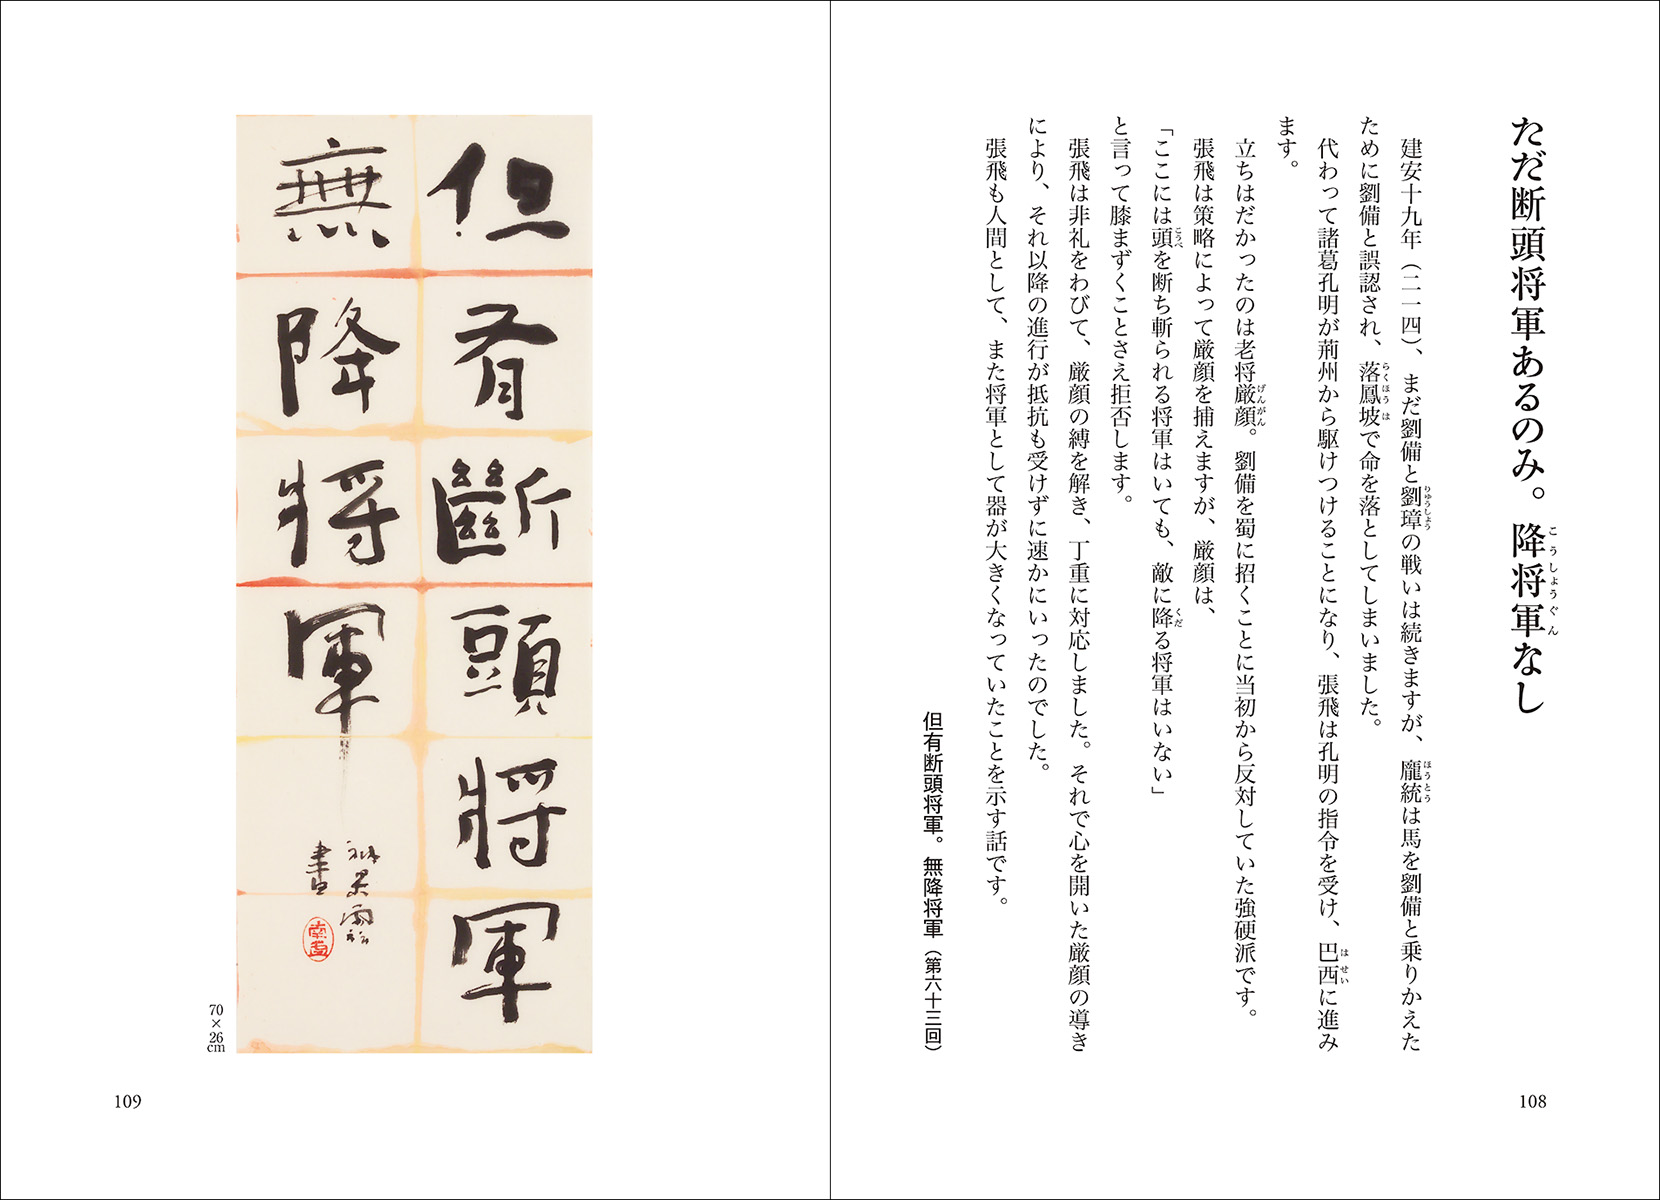 ただ断頭将軍あるのみ。降将軍なし
こうしょうぐん
建安十九年（二一四）、まだ劉備と劉璋の戦いは続きますが、龐統は馬を劉備と乗りかえた
りゅうしょう
ほうとう
ために劉備と誤認され、落鳳坡で命を落としてしまいました。
らくほうは
代わって諸葛孔明が荊州から駆けつけることになり、張飛は孔明の指令を受け、巴西に進み
はせい
ます。
立ちはだかったのは老将厳顔。劉備を蜀に招くことに当初から反対していた強硬派です。
げんがん
張飛は策略によって厳顔を捕えますが、厳顔は、
「ここには頭を断ち斬られる将軍はいても、敵に降る将軍はいない」
こうべ
くだ
と言って膝まずくことさえ拒否します。
張飛は非礼をわびて、厳顔の縛を解き、丁重に対応しました。それで心を開いた厳顔の導き
により、それ以降の進行が抵抗も受けずに速かにいったのでした。
張飛も人間として、また将軍として器が大きくなっていたことを示す話です。
但有断頭将軍。無降将軍（第六十三回）
108
但有斷頭將軍
無降将軍
書
70×26cm
109